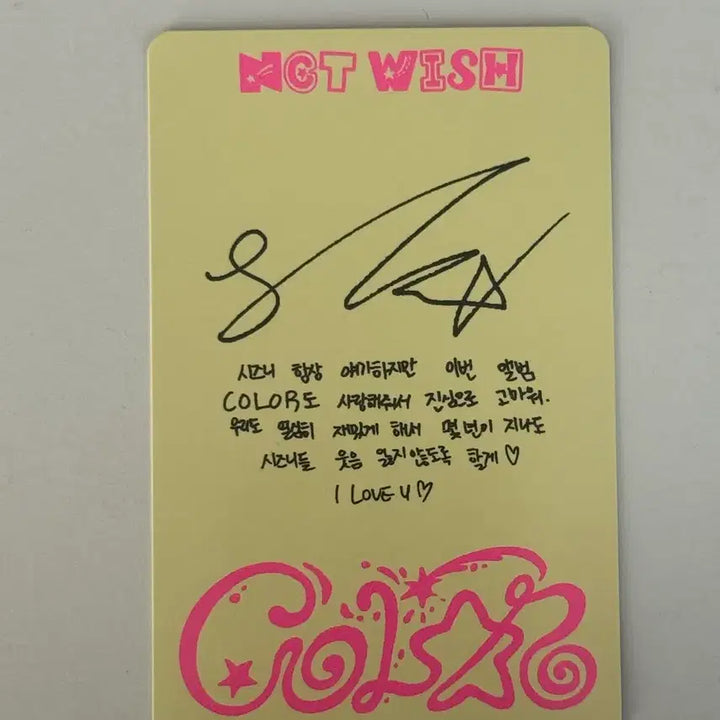 NCT WISH
시즈니 항상 얘기하지만 이번 앨범
COLOR도 사랑해줘서 진심으로 고마워.
우리도 열심히 재밌게 해서 몇년이 지나도
시즈니들 웃음 잃지않도록 할게♡
I LOVE U♡
COLOR